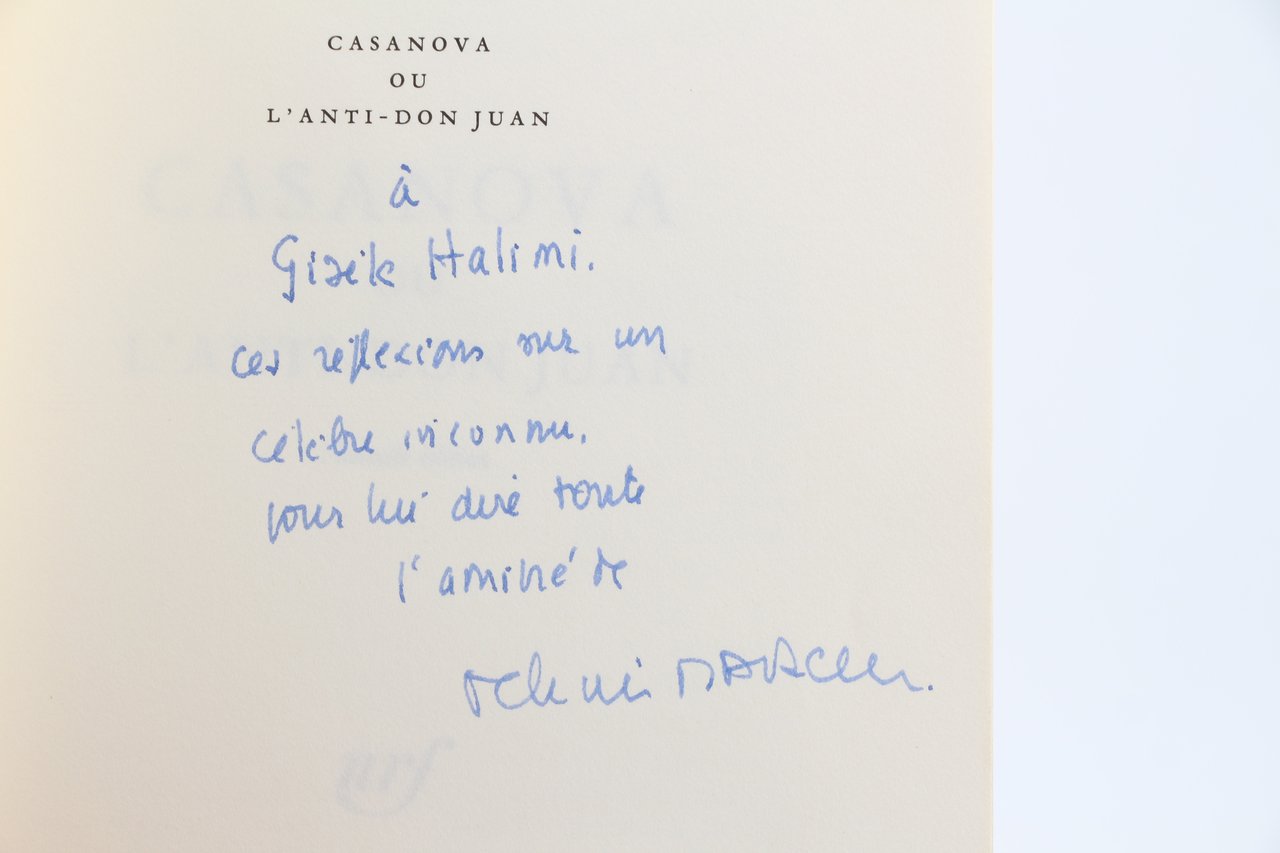 CASANOVA
OU
L'ANTI-DON JUAN
à
Gisèle Halimi.
ces réflexions sur un
célèbre inconnu.
pour lui dire toute
l'amitié de
Félicien MARCEAU.
CASANOVA
L'ANTI-DON JUAN
nrf